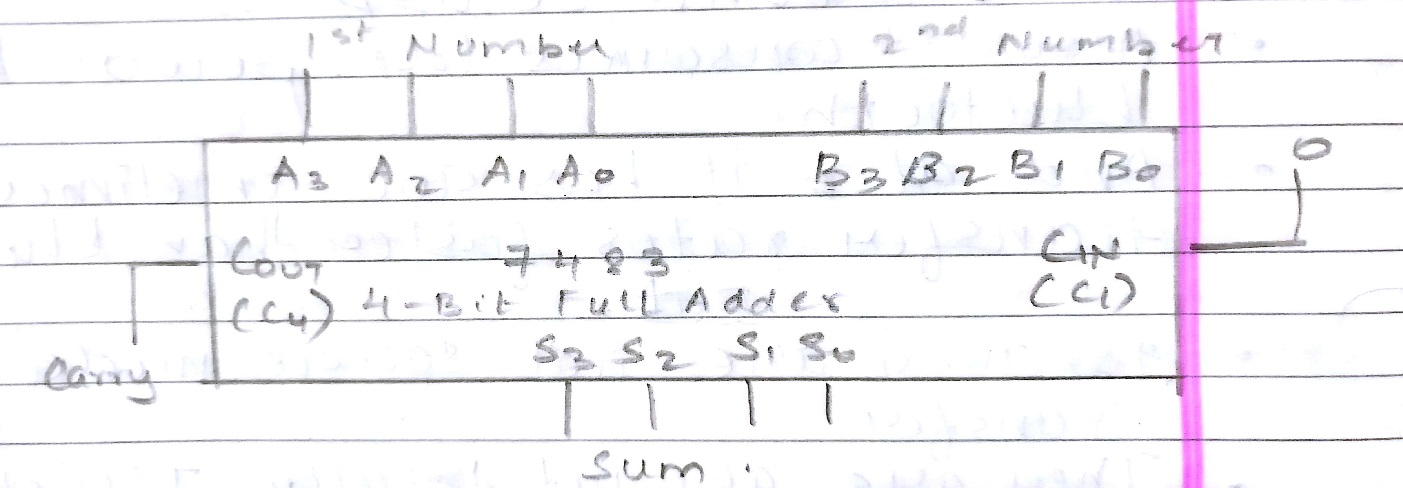 1st Number 2nd Number
0
A3 A2 A1 A0 B3 B2 B1 B0
COUT 7483 CIN
(C4) 4-Bit Full Adder (C1)
S3 S2 S1 S0
Carry
Sum.